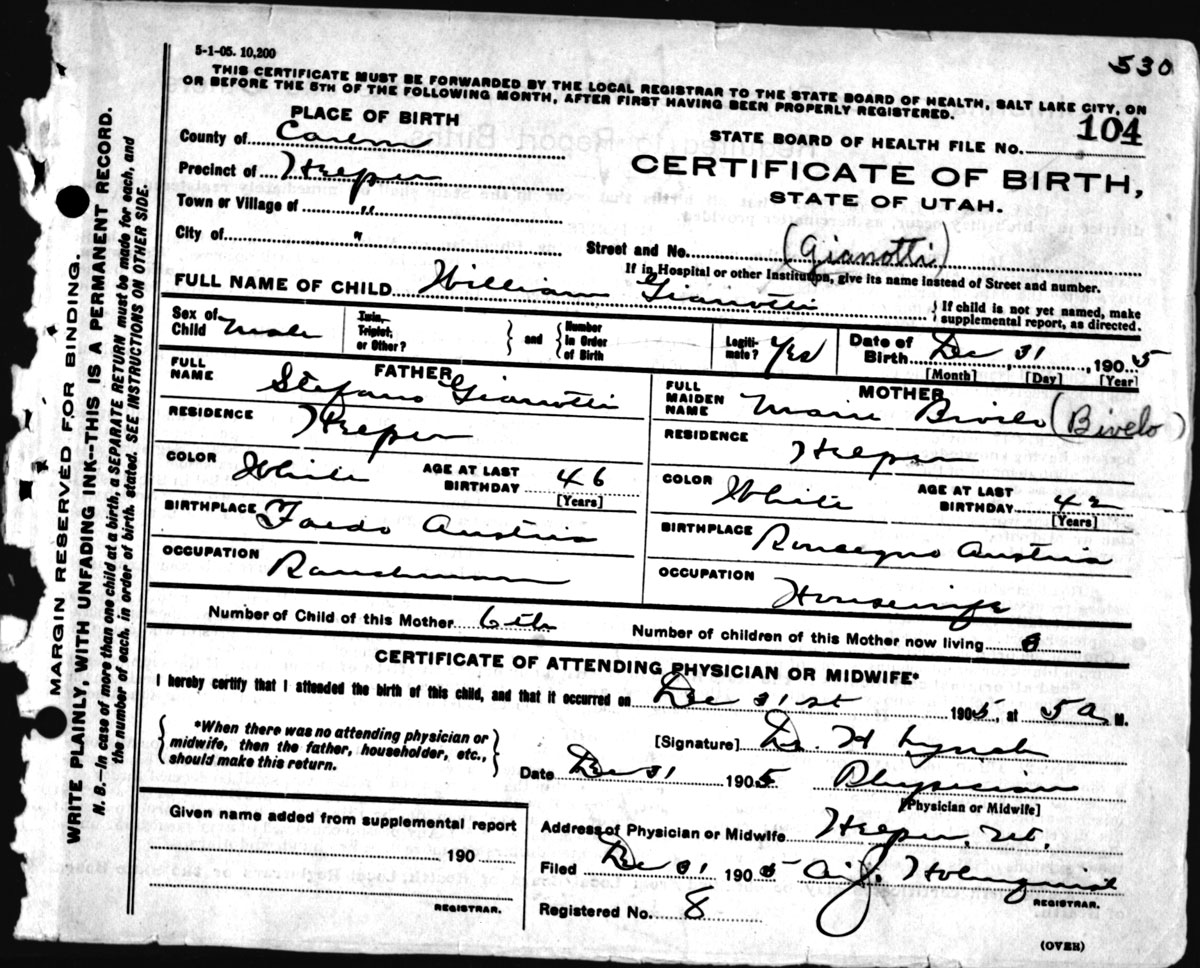 5-1-05. 10,200
530
THIS CERTIFICATE MUST BE FORWARDED BY THE LOCAL REGISTRAR TO THE STATE BOARD OF HEALTH, SALT LAKE CITY, ON
OR BEFORE THE 5TH OF THE FOLLOWING MONTH, AFTER FIRST HAVING BEEN PROPERLY REGISTERED.
PLACE OF BIRTH
County of Carbon
Precinct of Helper
Town or Village of "
City of "
STATE BOARD OF HEALTH FILE NO. 104
CERTIFICATE OF BIRTH,
STATE OF UTAH.
Street and No. (Gianotti)
If in Hospital or other Institution, give its name instead of Street and number.
FULL NAME OF CHILD William Gianotti
{ If child is not yet named, make
supplemental report, as directed.
Sex of Child Male
Twin, Triplet, or Other?
} and { Number In Order of Birth
Legiti- mate? Yes
Date of Birth Dec 31, 1905
[Month] [Day] [Year]
FATHER
FULL NAME Stefano Gianotti
RESIDENCE Helper
COLOR White AGE AT LAST BIRTHDAY 46
[Years]
BIRTHPLACE Faedo Austria
OCCUPATION Ranchman
MOTHER
FULL MAIDEN NAME Marie (Bivelo)
RESIDENCE Helper
COLOR White AGE AT LAST BIRTHDAY 42
[Years]
BIRTHPLACE Roncegno Austria
OCCUPATION Housewife
Number of Child of this Mother 6th
Number of children of this Mother now living
CERTIFICATE OF ATTENDING PHYSICIAN OR MIDWIFE*
I hereby certify that I attended the birth of this child, and that it occurred on Dec 31st 1905, at 5 a M.
{ *When there was no attending physician or
midwife, then the father, householder, etc.,
should make this return. }
[Signature] Dr. H Lynch
Date Dec 31 1905 Physician
[Physician or Midwife]
Given name added from supplemental report
190
REGISTRAR.
Address of Physician or Midwife Helper, Ut.
Filed Dec 31 1905 Holmquist
REGISTRAR.
Registered No. 8
(OVER)
MARGIN RESERVED FOR BINDING.
WRITE PLAINLY, WITH UNFADING INK--THIS IS A PERMANENT RECORD.
N. B.--In case of more than one child at a birth, a SEPARATE RETURN must be made for each, and
the number of each, in order of birth, stated. SEE INSTRUCTIONS ON OTHER SIDE.